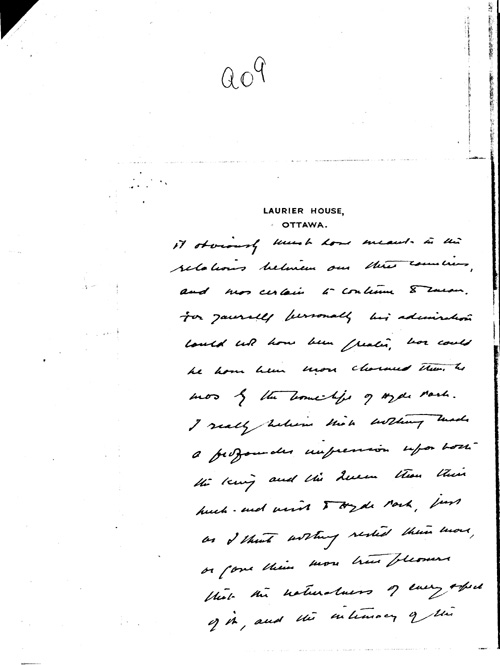 a09
LAURIER HOUSE,
OTTAWA.
it obviously must have meant to the
relations between our three countries,
and was certain to continue to mean.
For yourself personally his admiration
could not have been greater, nor could
he have been more charmed than he
was by the home-life of Hyde Park.
I really believe that nothing made
a profounder impression upon both
the King and the Queen than their
week-end visit to Hyde Park, just
as I think nothing rested them more,
or gave them more true pleasure
than the naturalness of every aspect
of it, and the intimacy of the